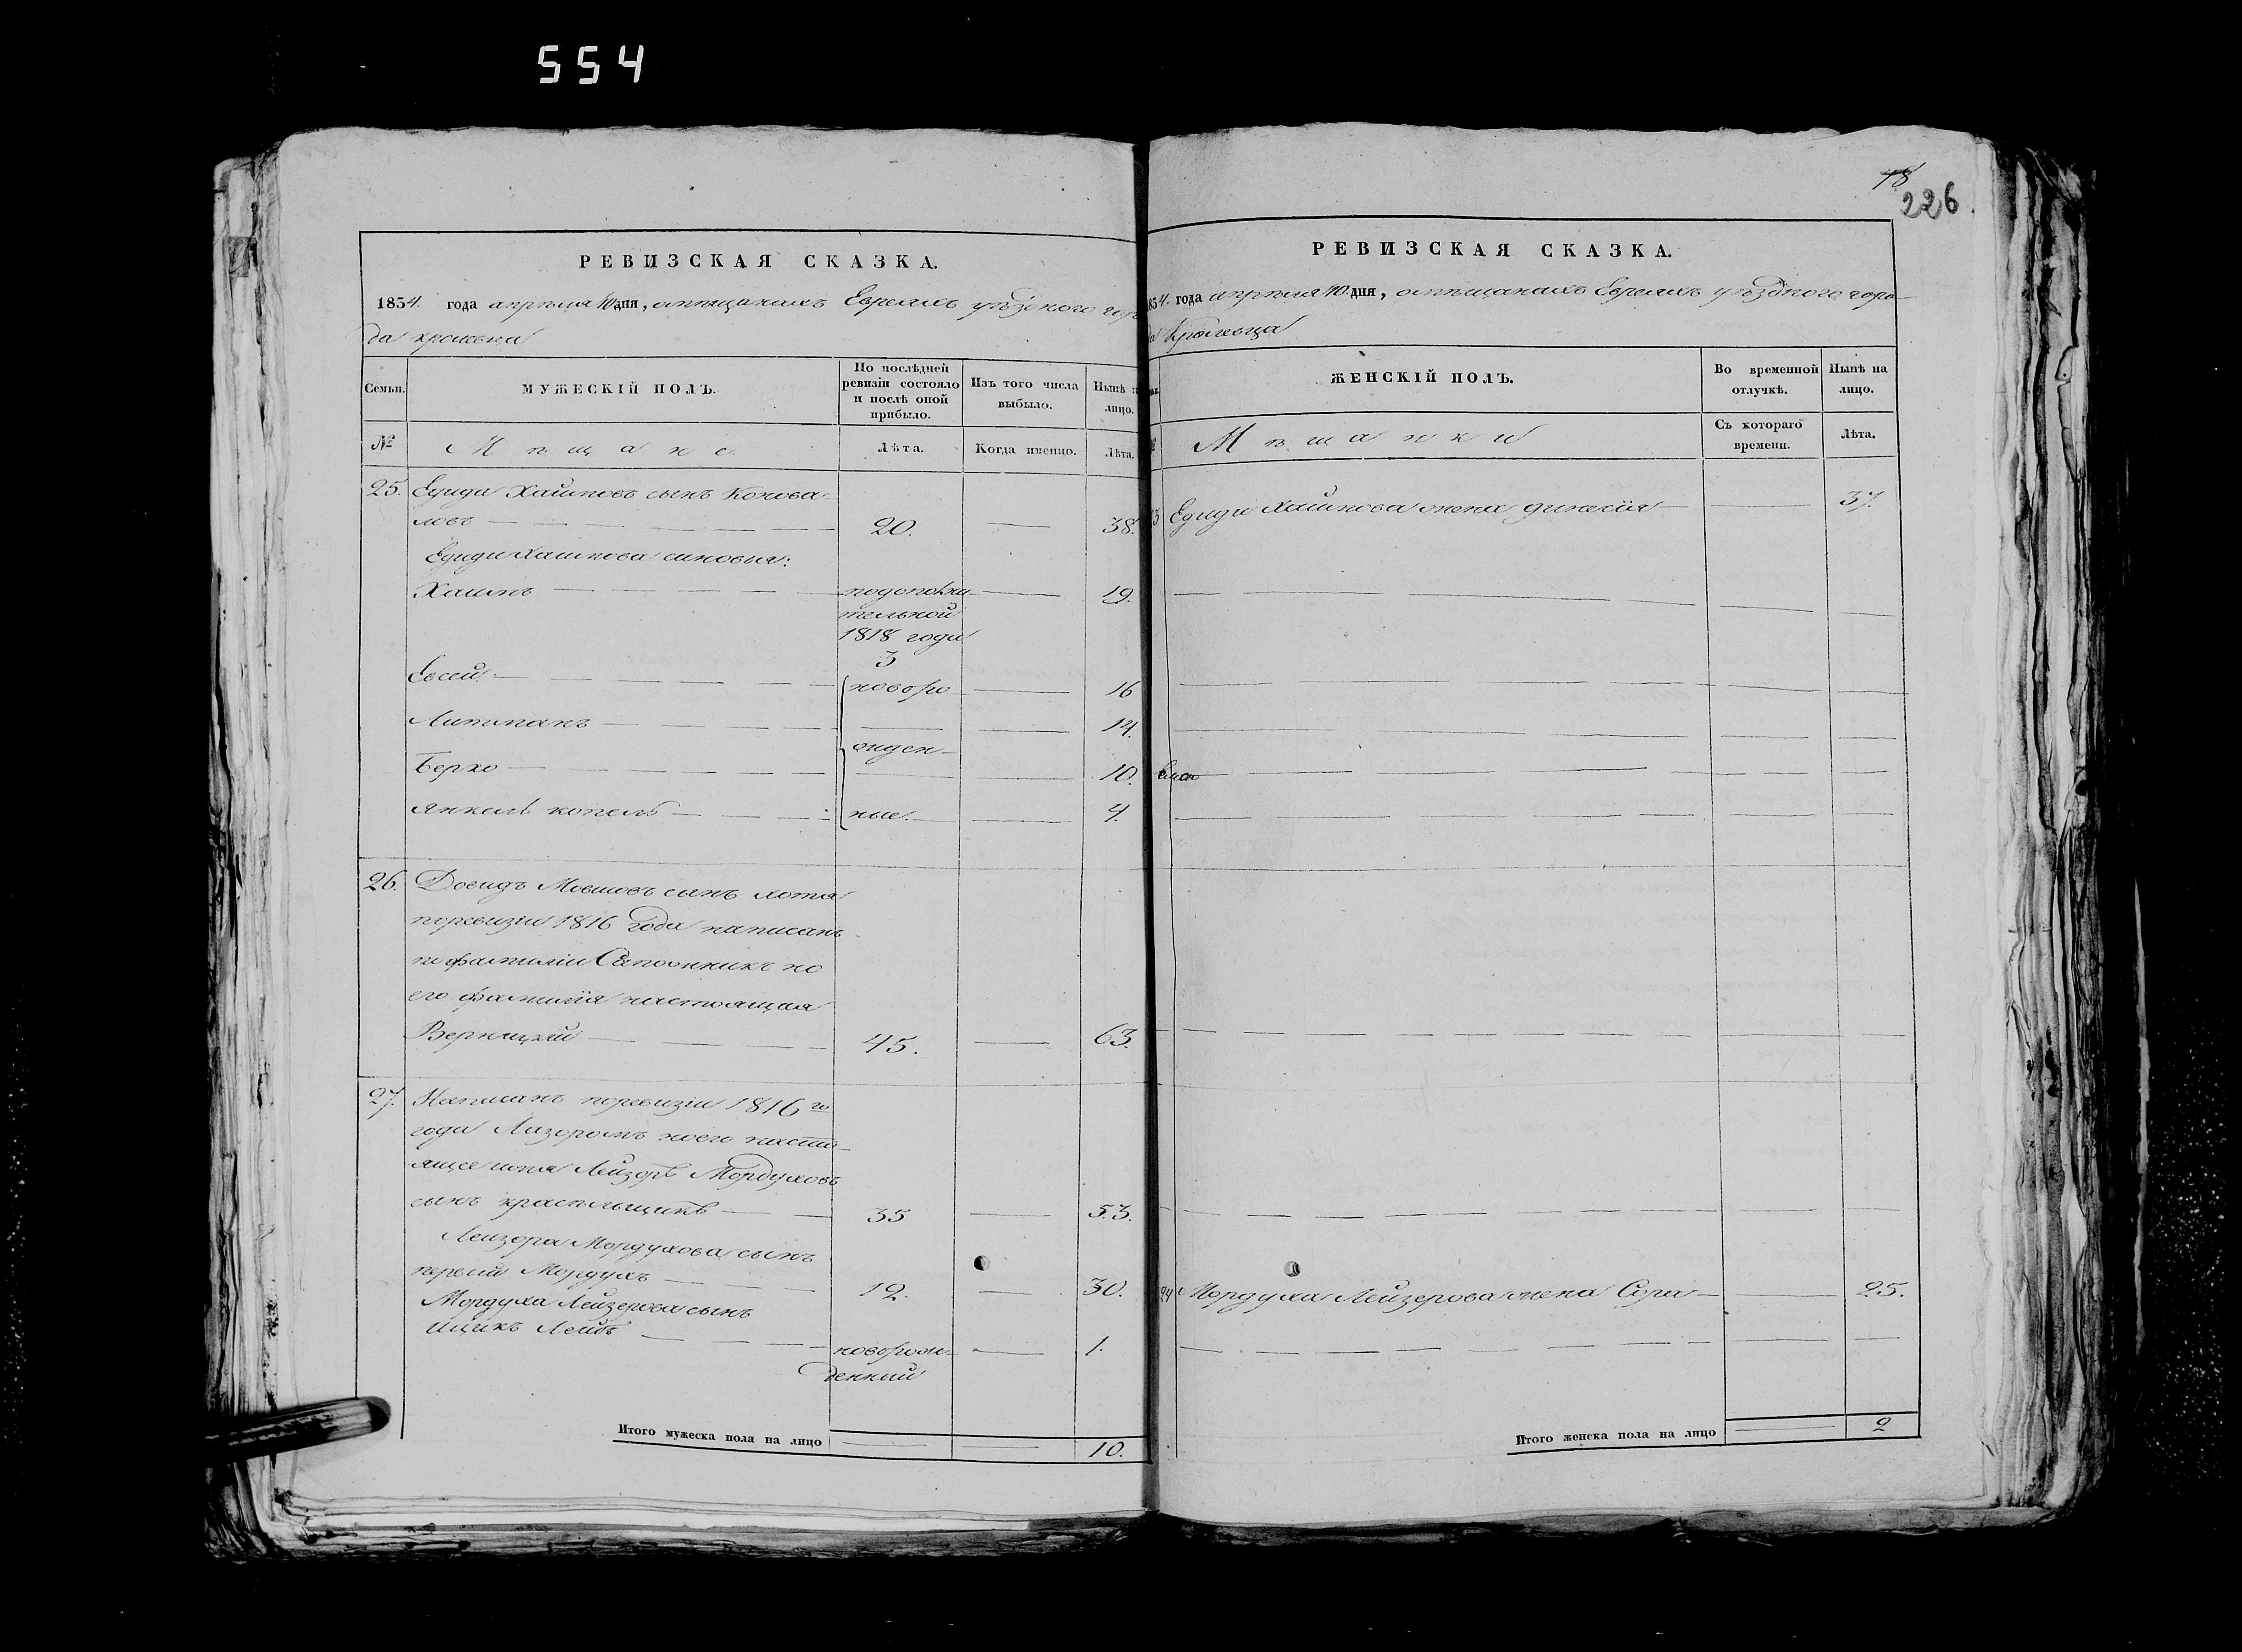 554
18
226
РЕВИЗСКАЯ СКАЗКА.
1834 года апрѣля 10 дня, о мѣщанахъ Евреяхъ уѣздного горо
да кролевца
Семьи. МУЖЕСКІЙ ПОЛЪ. По послѣдней ревизіи состояло и послѣ оной прибыло. Изъ того числа выбыло. Нынѣ на лицо.
№ Мѣщане Лѣта. Когда именно. Лѣта.
25. Едида Хаимовъ сынъ Конова
ловъ — 20. — 38.
Едиди Хаимова синовья:
Хаимъ — подополни — 19.
тельной
1818 года
3
Евсей — новоро — 16
Липманъ — 14.
жден
Берко — 10.
Янкель копель — ные. — 4.
26. Довидъ Мовшовъ сынъ хотя
поревизіи 1816 года написанъ
по фамиліи Сапожникъ но
его фамилія настоящая
Верницкій — 45. — 63.
27. Написанъ поревизіи 1816го
года Лазоромъ ноего насто
ящее имя Лейзоръ Мордуховъ
сынъ красильщикъ — 35 — 53.
Лейзора Мордухова сынъ
первий Мордухъ — 12. — 30.
Мордуха Лейзерова сынъ
Ицикъ Лейбъ — новорож — 1.
денний
Итого мужеска пола на лицо — — 10.
РЕВИЗСКАЯ СКАЗКА.
1834 года апрѣля 10 дня, о мѣщанахъ Евреяхъ уѣздного горо
да Кролевца
ЖЕНСКІЙ ПОЛЪ. Во временной отлучкѣ. Нынѣ на лицо.
№ Мѣщанки Съ котораго времени. Лѣта.
Едиди Хаимова жена — 37.
24 Мордуха Лейзерова жена Сора — 25.
Итого женска пола на лицо — 2